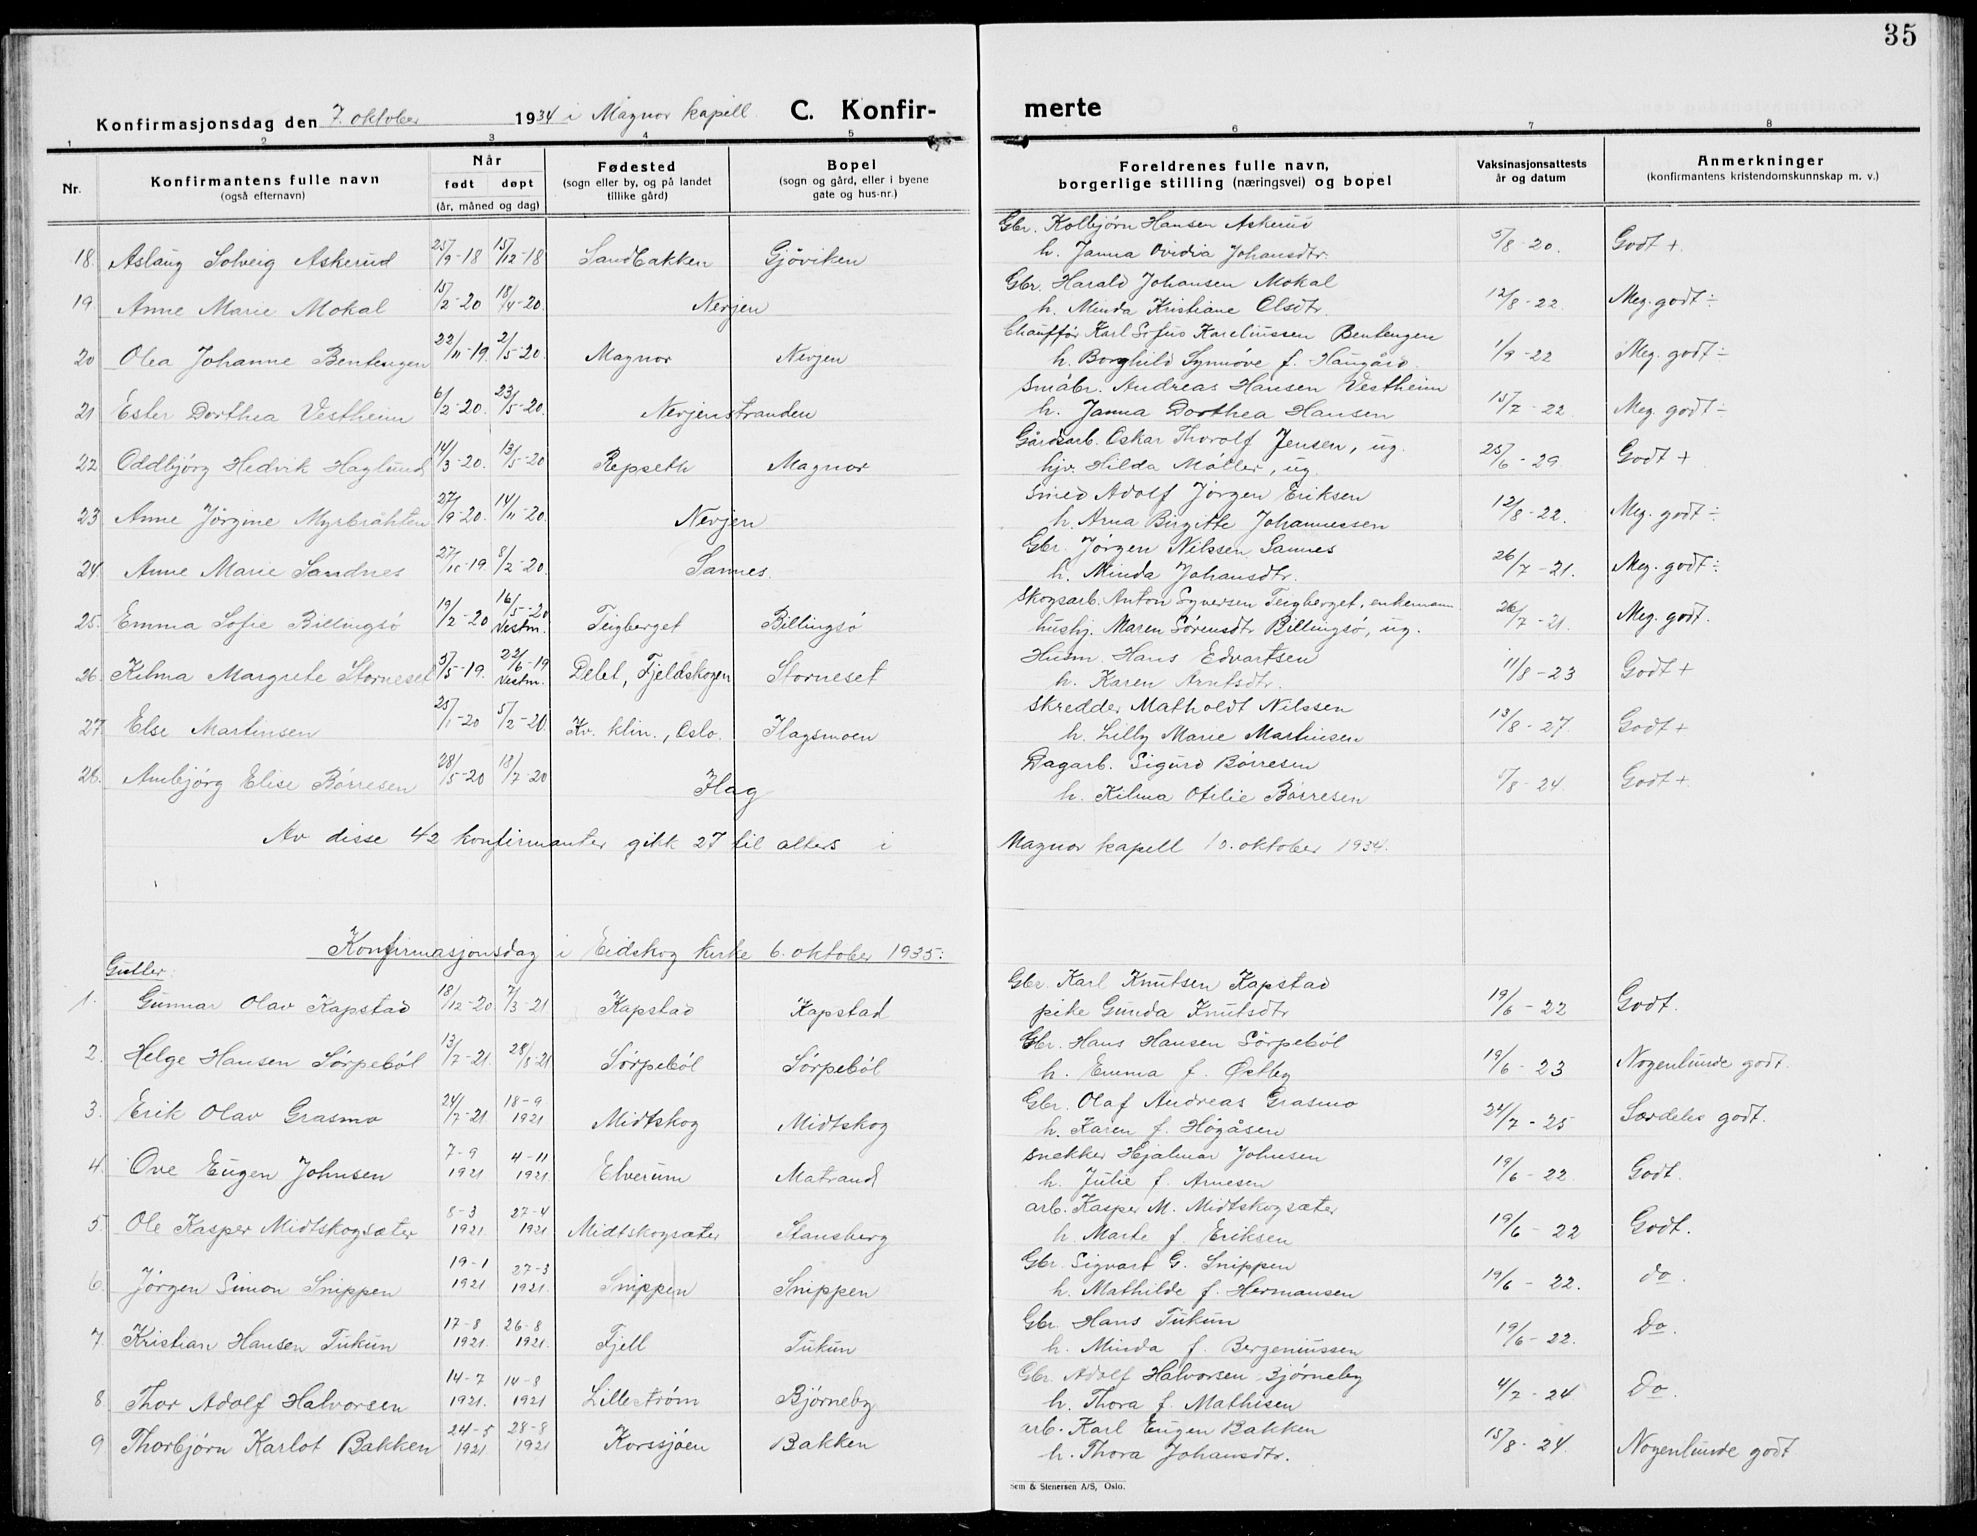 35
Konfirmasjonsdag den 7. oktober 1934 i Magnor kapell. C. Konfirmerte
1 2 3 4 5 6 7 8
Nr.
Konfirmantens fulle navn
(også efternavn)
Når
født døpt
(år, måned og dag)
Fødested
(sogn eller by, og på landet
tillike gård)
Bopel
(sogn og gård, eller i byene
gate og hus-nr.)
Foreldrenes fulle navn,
borgerlige stilling (næringsvei) og bopel
Vaksinasjonsattests
år og datum
Anmerkninger
(konfirmantens kristendomskunnskap m. v.)
18. Aslaug Solveig Askerud 25/9-18 15/12-18 Sandbakken Gjøviken Gbr. Kolbjørn Hansen Askerud 5/8-20. Godt +
h. Janna Ovidia Johansdtr.
19 Anne Marie Mokal 15/2-20 18/4-20. Nevjen Gbr. Harald Johansen Mokal 12/8-22. Meg. godt ÷
h. Minda Kristiane Olsdtr.
20 Olea Johanne Bentengen 22/11-19. 2/5-20. Magnor Nevjen Chauffør Karl Karelinssen Bentengen 1/9-22 Meg. godt ÷
h. Borghild Synnøve f. Haugård.
21 Ester Dorthea Vestheim 6/2-20. 23/5-20. Nevjenstranden Småbr. Andreas Hansen Vestheim 15/7-22. Meg. godt ÷
h. Janna Dorthea Hansen
22 Oddbjörg Hedvik Haglund 14/3-20. 13/5-20 Repseth Magnor Gårdsarb. Oskar Thorolf Jensen, ug. 25/6-29. Godt +
hjv. Hilda Møller, ug.
23 Anne Jörgine Myrbråhten 27/9-20. 14/11-20. Nevjen Smed Adolf Jörgen Eriksen 12/8-22. Meg. godt ÷
h. Arna Birgitte Johannessen
24. Anne Marie Sandnes 27/10-19. 8/2-20. Sannes. Gbr. Jørgen Nilssen Sannes 26/7-21. Meg. godt ÷
h. Minda Johansdtr.
25. Emma Sofie Billingsö 19/2-20 16/5-20 Vestm. Teigberget Billingsö Skogsarb. Anton Syversen Teigberget, enkemann 26/7-21. Meg. godt.
hushj. Maren Sörensdtr Billingsö, ug.
26. Kilma Margrete Storneset 5/5-19. 22/6-19 Vestm. Delet, Fjeldskogen Storneset Husm. Hans Edvartsen 11/8-23 Godt +
h. Karen Arntsdtr.
27. Else Martinsen 25/1-20 5/2-20. Kv. klin., Oslo. Flagsmoen Skredder Matholdt Nilssen 13/8-27. Godt +
h. Lilly Marie Martinsen
28. Ambjörg Elise Börresen 28/5-20 18/7-20 Flag Dagarb. Sigurd Börresen 5/8-24. Godt +
h. Kilma Otilie Börresen
Av disse 42 konfirmanter gikk 27 til alters i Magnor kapell 10. oktober 1934.
Konfirmasjonsdag i Eidskog kirke 6. oktober 1935:
Gutter:
1. Gunnar Olav Kapstad 18/12-20 7/3-21 Kapstad Kapstad Gbr. Karl Knutsen Kapstad 19/6-22 Godt.
pike Gunda Knutsdtr
2. Helge Hansen Sörpeböl 13/7-21. 28/8-21 Sörpeböl Sörpeböl Gbr. Hans Hansen Sörpeböl 19/6-23 Nogenlunde godt.
h. Emma f. Østby
3. Erik Olav Grasmo 24/7-21 18-9 1921 Midtskog Midtskog Gbr. Olaf Andreas Grasmo 24/7-25 Særdeles godt.
h. Karen f. Högåsen
4. Ove Eugen Johnsen 7-9 1921 4-11 1921 Elverum Matrand Snekker Hjalmar Johnsen 19/6-22. Godt.
h. Julie f. Arnesen
5. Ole Kasper Midtskogsæter 8-3 1921 27-4 1921 Midtskogsæter Stansberg arb. Kasper M. Midtskogsæter 19/6-22 Godt.
h. Marte f. Eriksen
6. Jørgen Simon Snippen 19-1 1921 27-3 1921. Snippen Snippen Gbr. Sigvart G. Snippen 19/6-22. do.
h. Mathilde f. Hermansen
7. Kristian Hansen Tukun 17-8 1921. 26-8 1921. Fjell Tukun Gbr. Hans Tukun 19/6-22. Do.
h. Minda f. Bergeniussen
8 Thor Adolf Halvorsen 14-7 1921. 14-8 1921 Lillestrøm Bjørneby Gbr. Adolf Halvorsen Bjørneby 4/7-24 Do.
h. Thora f. Mathisen
9 Thorbjørn Karlot Bakken 24-5 1921 28-8 1921 Korssjøen Bakken arb. Karl Eugen Bakken 15/8-24. Nogenlunde godt
h. Thora Johansdtr.
Sem & Stenersen A/S, Oslo.